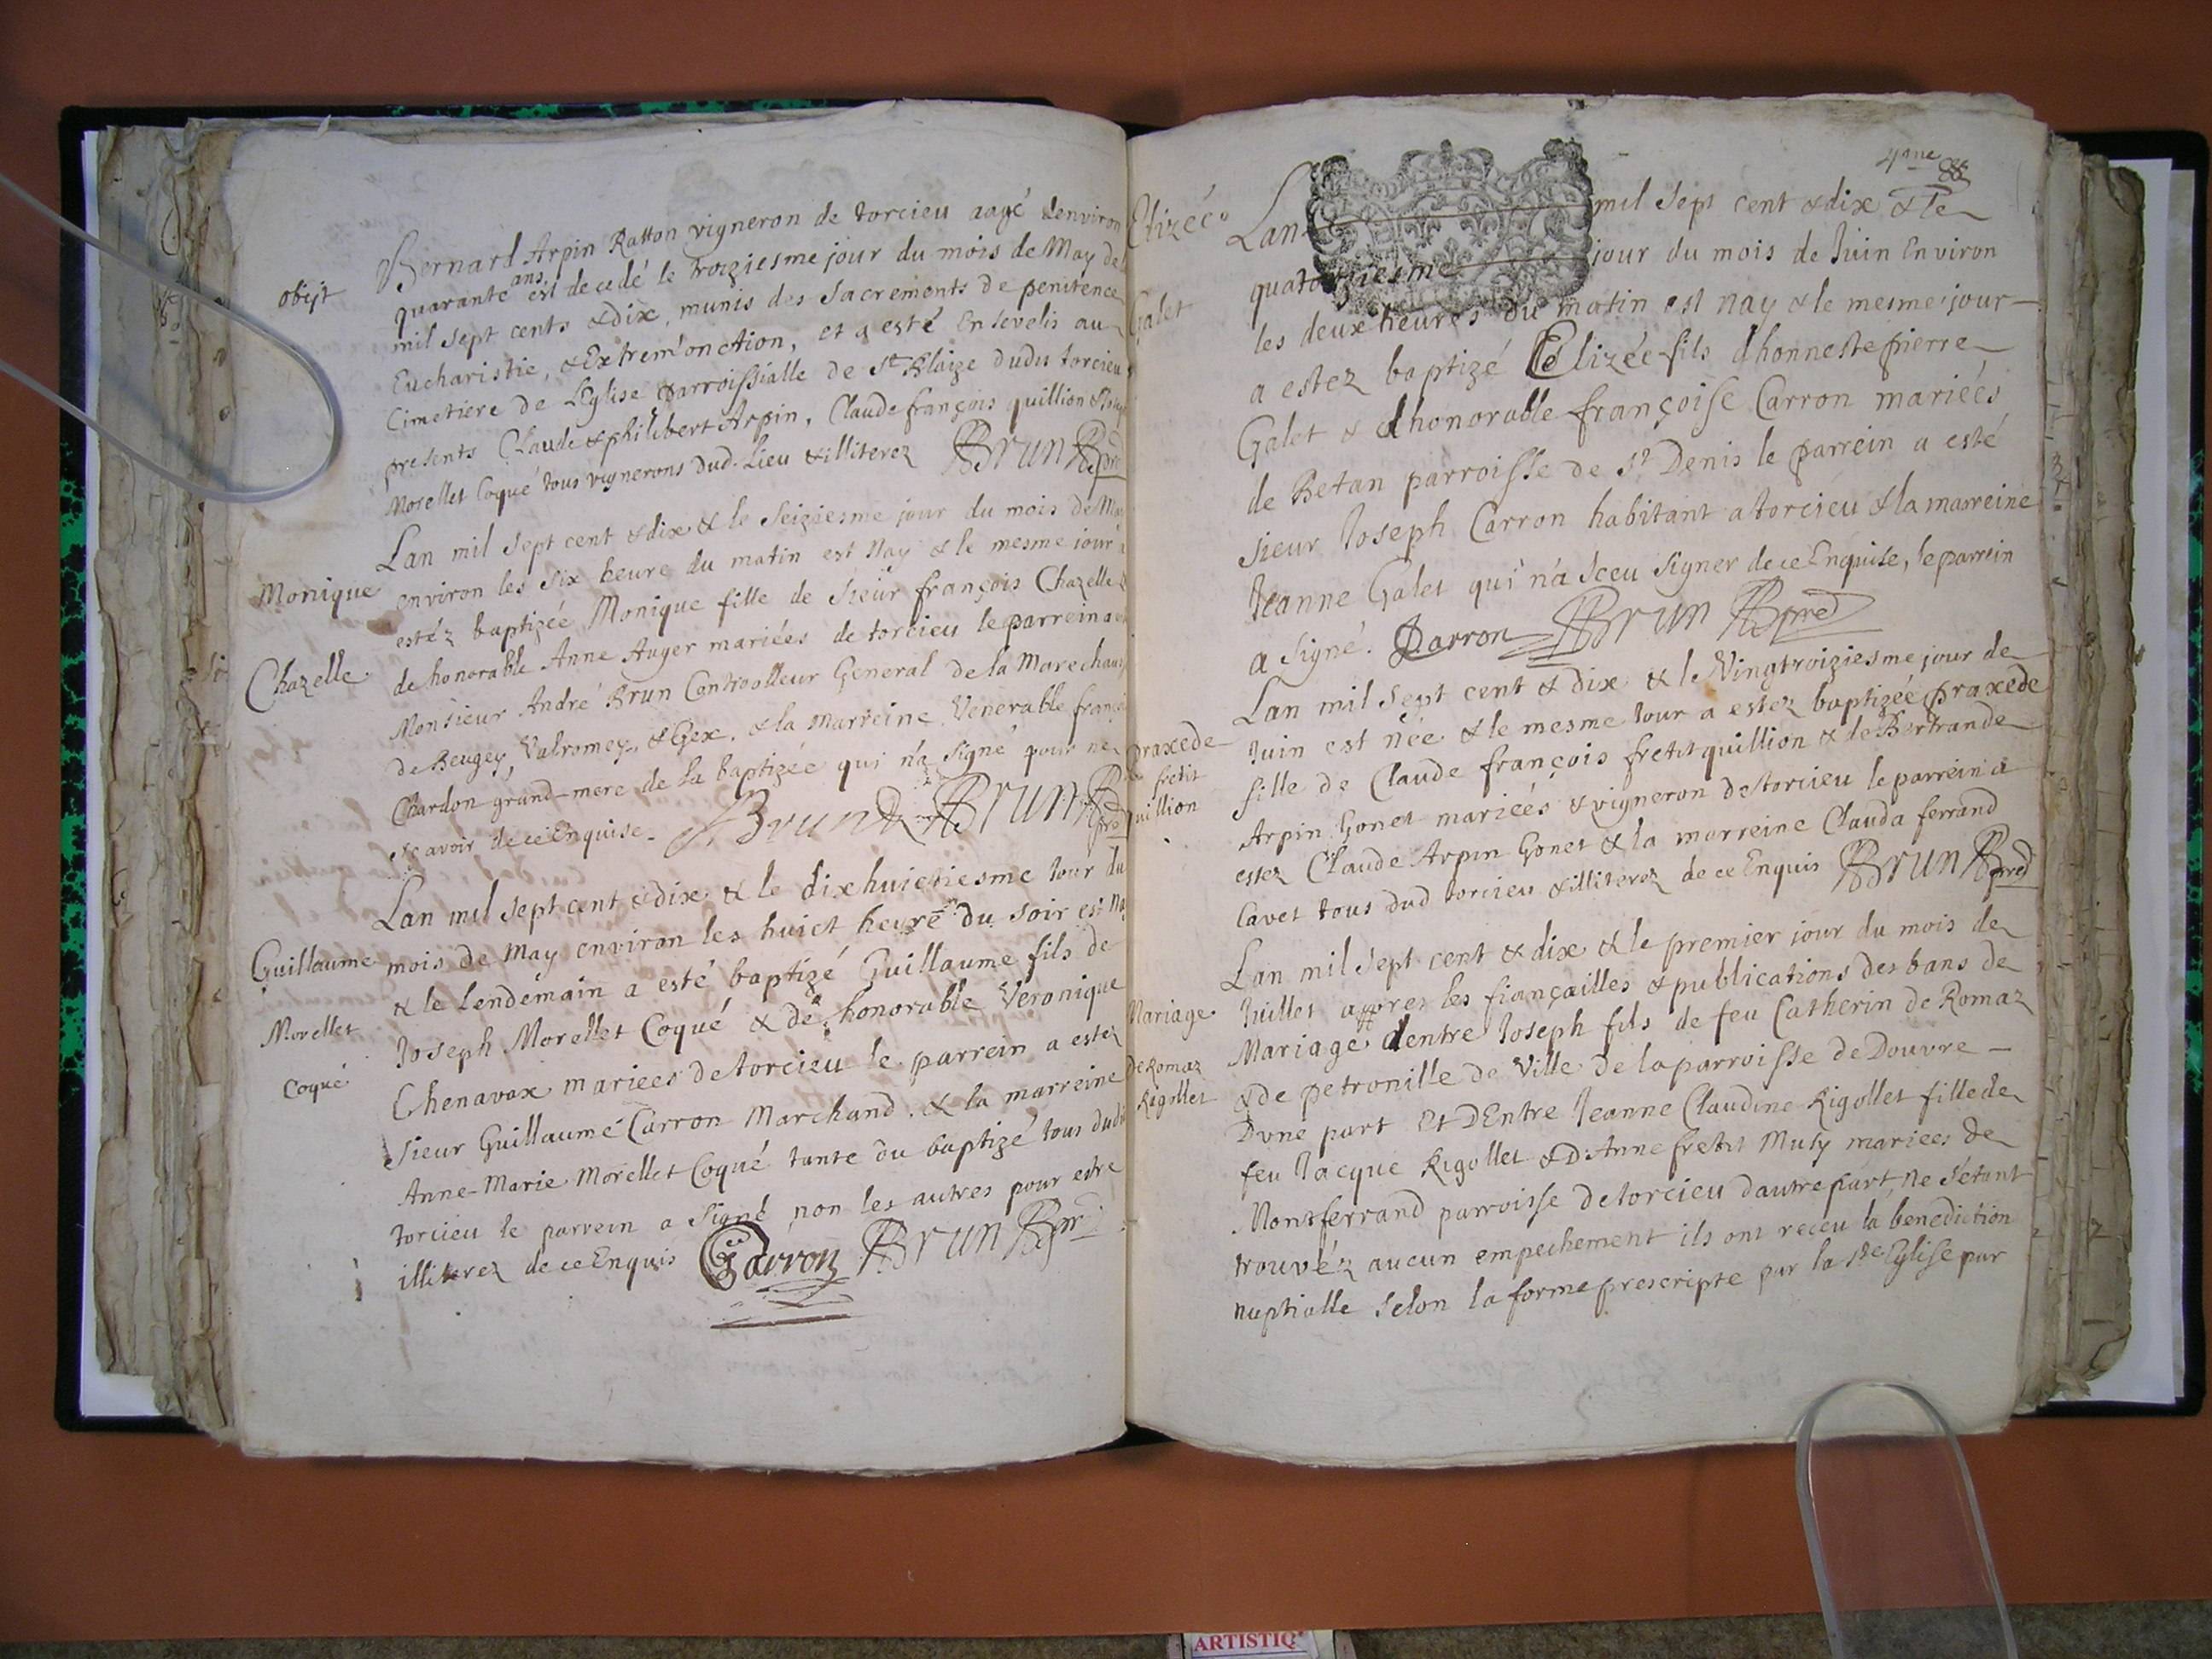 obijt
Bernard Arpin Ratton vigneron de torcieu aagé denviron
quarante ans est decedé le troiziesme jour du mois de May de
mil sept cents & dix, munis des Sacrements de penitence
Eucharistie, & Extrem'onction, et a esté Ensevelis au
Cimetiere de l'Eglise parroissialle de St Blaize dudit torcieu
presents Claude & philibert Arpin, Claude françois quillion &
Morellet Coqué tous vignerons dud. Lieu & illiterez Brun
Monique
Chazelle
Lan mil sept cent & dix & le Seiziesme jour du mois de
environ les six heure du matin est Nay & le mesme jour a
estéz baptizée Monique fille de Sieur françois Chazelle &
de honorable Anne Auger mariées de torcieu le parrein a
Monsieur André Brun Controolleur General de la
de Beugey, Valromey, & Gex, & la Marreine Venerable
Chardon grand-mere de la baptizée qui n'a signé pour ne
scavoir de ce Enquise. Brun Brun
Guillaume
Morellet
Coqué
Lan mil sept cent & dix & le dixhuictiesme Jour du
mois de May environ les huict heure du soir est
& le lendemain a esté baptizé Guillaume fils de
Joseph Morellet Coqué & de honorable Veronique
Chenavax mariees de torcieu le parrein a estez
Sieur Guillaume Carron Marchand. & la marreine
Anne-Marie Morellet Coqué tante du baptizé tous dudit
torcieu le parrein a Signé non les autres pour estre
illiterez de ce Enquis G Carron Brun
4me 88
Elizée
Galet
Lan mil sept cent & dix & le
quatorziesme jour du mois de Juin Environ
les deux heures du matin est nay & le mesme jour
a estez baptizé Elizée fils d'honneste pierre
Galet & d'honorable françoise Carron mariées
de Betan parroisse de St Denis le parrein a esté
sieur Joseph Carron habitant a torcieu & la marreine
Jeanne Galet qui n'a sceu signer de ce Enquise, le parrein
a signé. Carron Brun
praxede
fretit
quillion
Lan mil sept cent & dix & le Vingtroiziesme jour de
Juin est née & le mesme Jour a estez baptizée praxede
fille de Claude françois fretit quillion & de Bertrande
Arpin Gonet mariées & vigneron de torcieu le parrein a
estez Claude Arpin Gonet & la marreine Clauda ferrand
Cavet tous dud torcieu & illiterez de ce Enquis Brun
Mariage
de Romaz
Rigollet
Lan mil sept cent & dix & le premier jour du mois de
Juillet appres les fiançailles & publications des bans de
Mariage dentre Joseph fils de feu Catherin de Romaz
& de petronille de Ville de la parroisse de Douvre
Dvne part Et DEntre Jeanne Claudine Rigollet fille de
feu Jacque Rigollet & D'Anne fretit Muty mariees de
Montferrand parroisse de torcieu dautre part, ne setant
trouvéz aucun empechement ils ont receu la benediction
nuptialle selon la forme prescripte par la ste Eglise par
ARTISTIQ